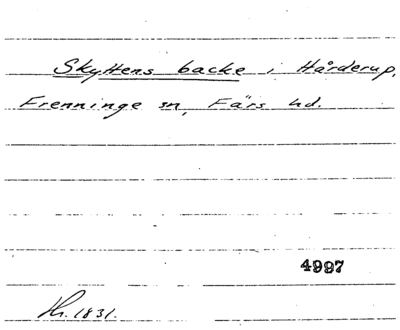 Skyttens backe i Hårderup,
Frenninge sn, Färs hd.
4997
Hr. 1831.